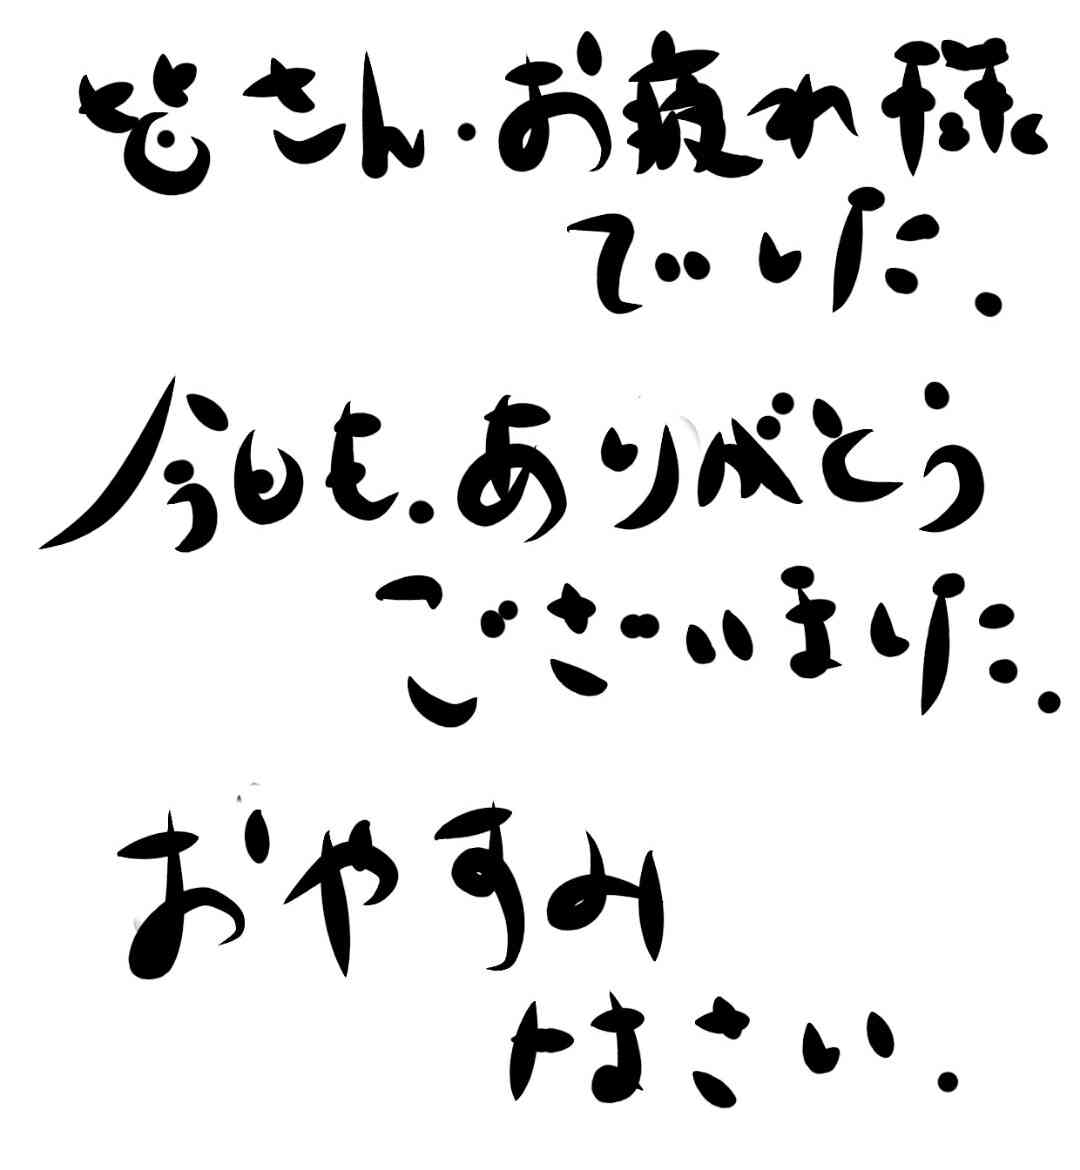 皆さん・お疲れ様
でした.
今日も.ありがとう
ございました.
おやすみ
なさい.